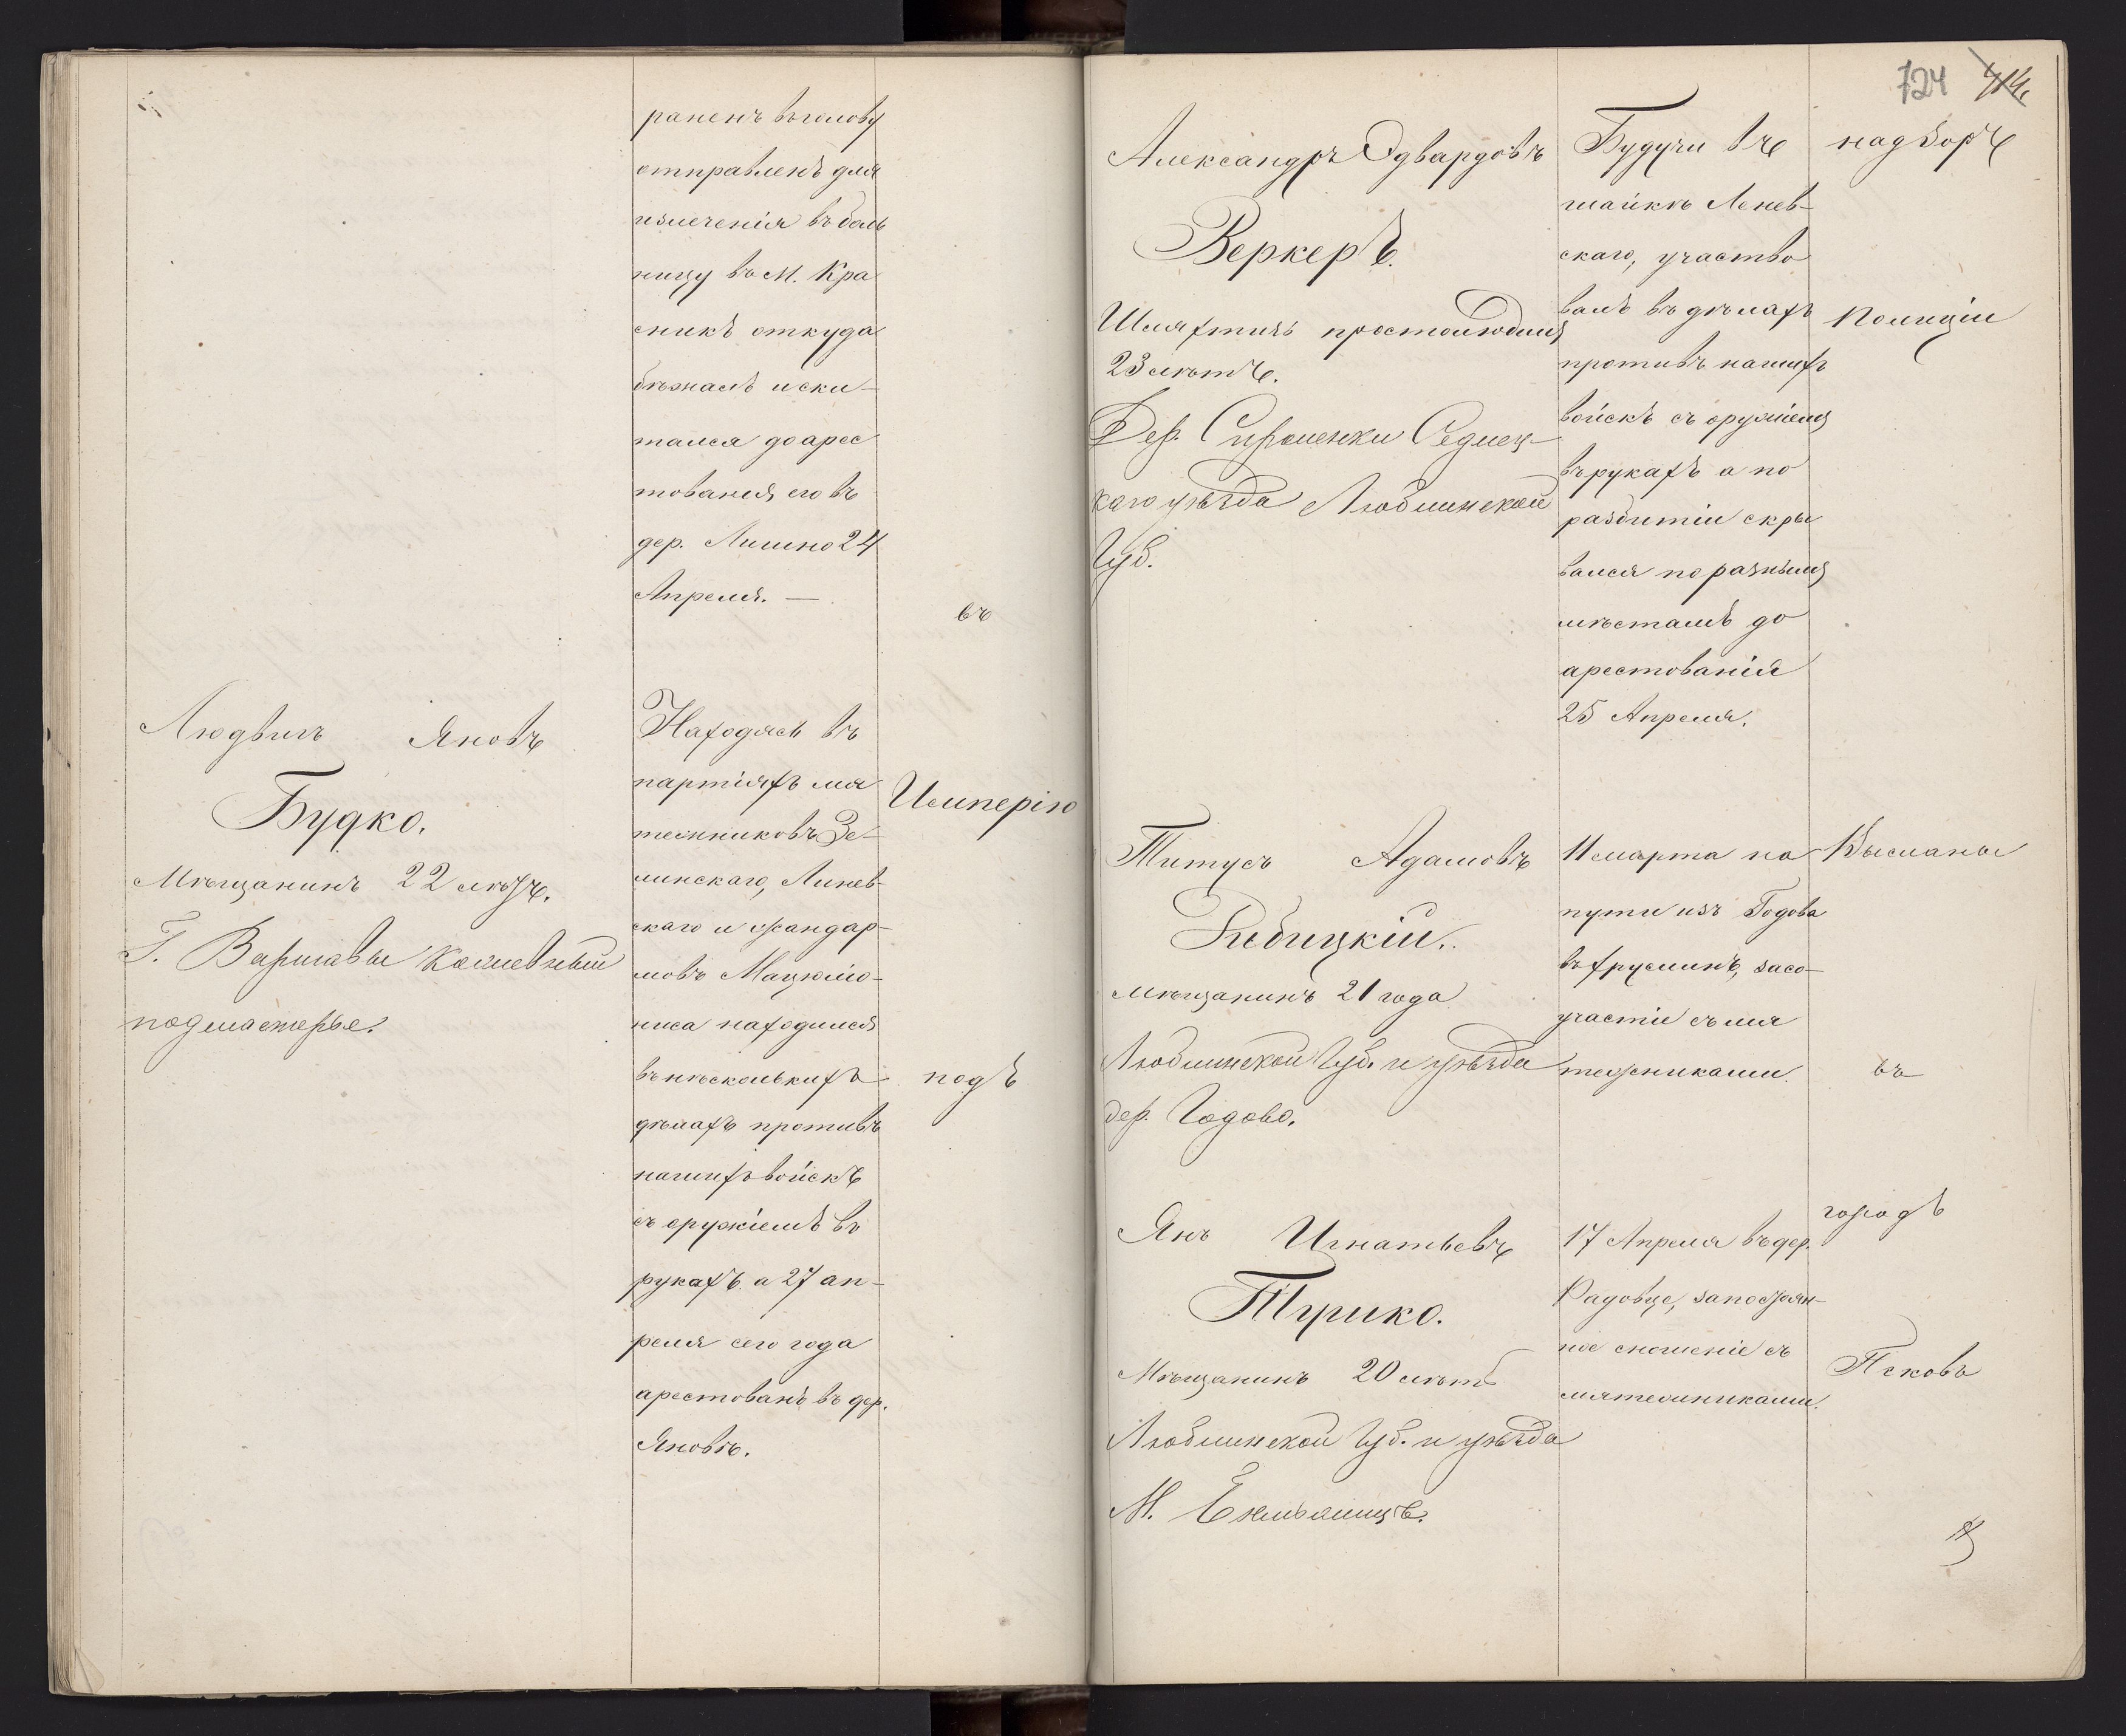 раненъ въ голову
отправленъ для
излеченія въ боль
ницу въ М. Кра
сникъ откуда
бѣжалъ и ски-
тался до арес
тованія его въ
дер. Лишно 24
Апреля. —
въ
Людвигъ Яновъ
Будко.
Мѣщанинъ 22 лѣтъ.
Г. Варшавы
подмастерье.
Находясь въ
партіяхъ мя
тежниковъ Зе-
линскаго, Линев-
скаго и жандар-
мовъ
ниса находился
въ нѣсколькихъ
дѣлахъ противъ
нашихъ войскъ
съ оружіемъ въ
рукахъ а 27 ап-
реля сего года
арестованъ въ дер.
Яновъ.
Имперію
подъ
124 414
Александръ Эдвардовъ
Веркеръ.
Шляхтичъ простолюдинъ
23 лѣтъ.
Дер. Седлец-
каго уѣзда Люблинской
Губ.
Будучи въ
шайкѣ Ленев-
скаго, участво
валъ въ дѣлахъ
противъ нашихъ
войскъ съ оружіемъ
въ рукахъ а по
разбитіи скры
вался по разнымъ
мѣстамъ до
арестованія
25 Апреля.
надзоръ
Полиціи
Титусъ Адамовъ
Рибицкій.
Мѣщанинъ 21 года
Люблинской Губ. и уѣзда
дер. Годово.
11 марта на
пути изъ Годова
въ Хруслинъ, за со-
участіе съ мя
тежниками.
Высланы
въ
Янъ Игнатьевъ
Турико.
Мѣщанинъ 20 лѣтъ
Люблинской Губ. и уѣзда
М.
17 Апреля въ дер.
Радовце, за постоян-
ное сношеніе съ
мятежниками.
городъ
Псковъ